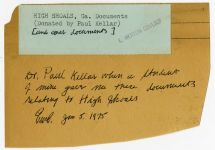 HIGH SHOALS, Ga. Documents
(Donated by Paul Kellar)
[and over documents]
Dr. Paul Kellar when a student
of mine gave me these documents
relating to High Shoals
Jan 5, 1975